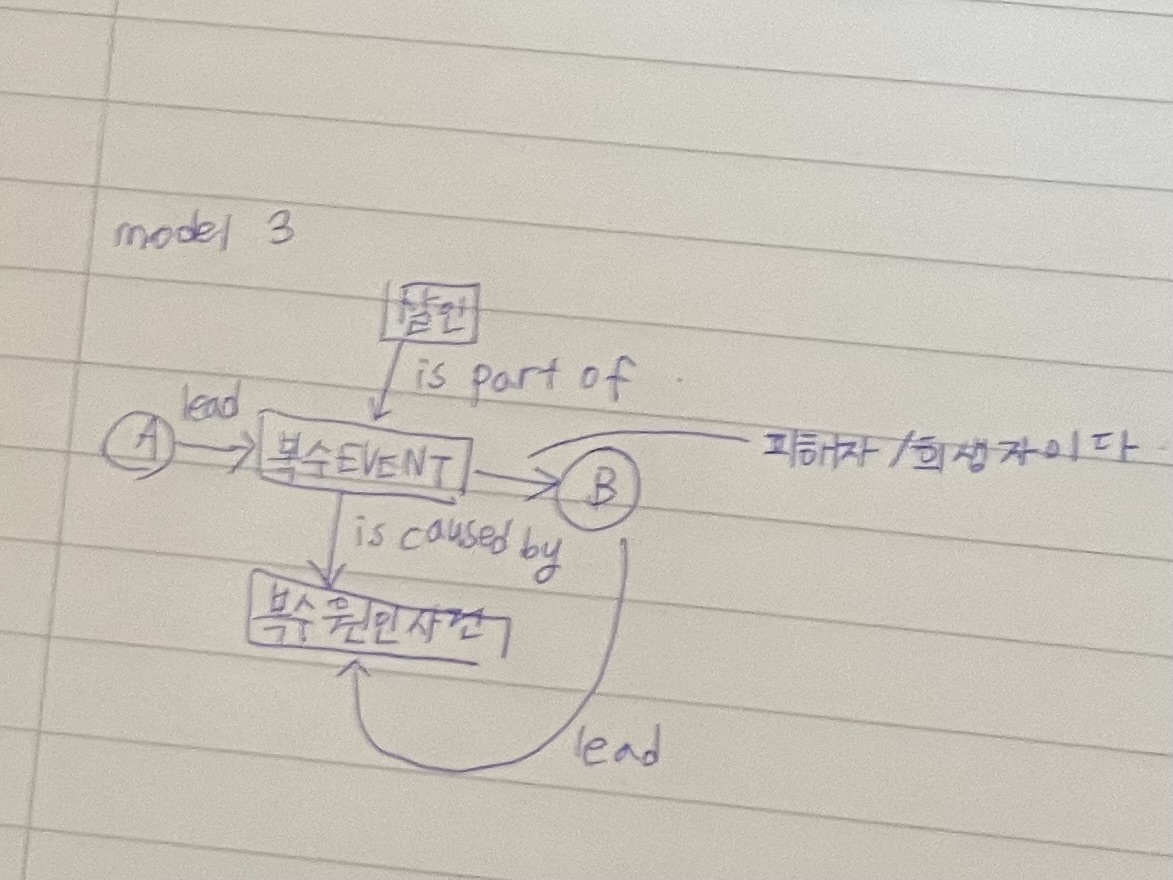 model 3
살인
is part of
lead
A
복수EVENT
B
피해자/희생자이다
is caused by
복수 원인사건
lead